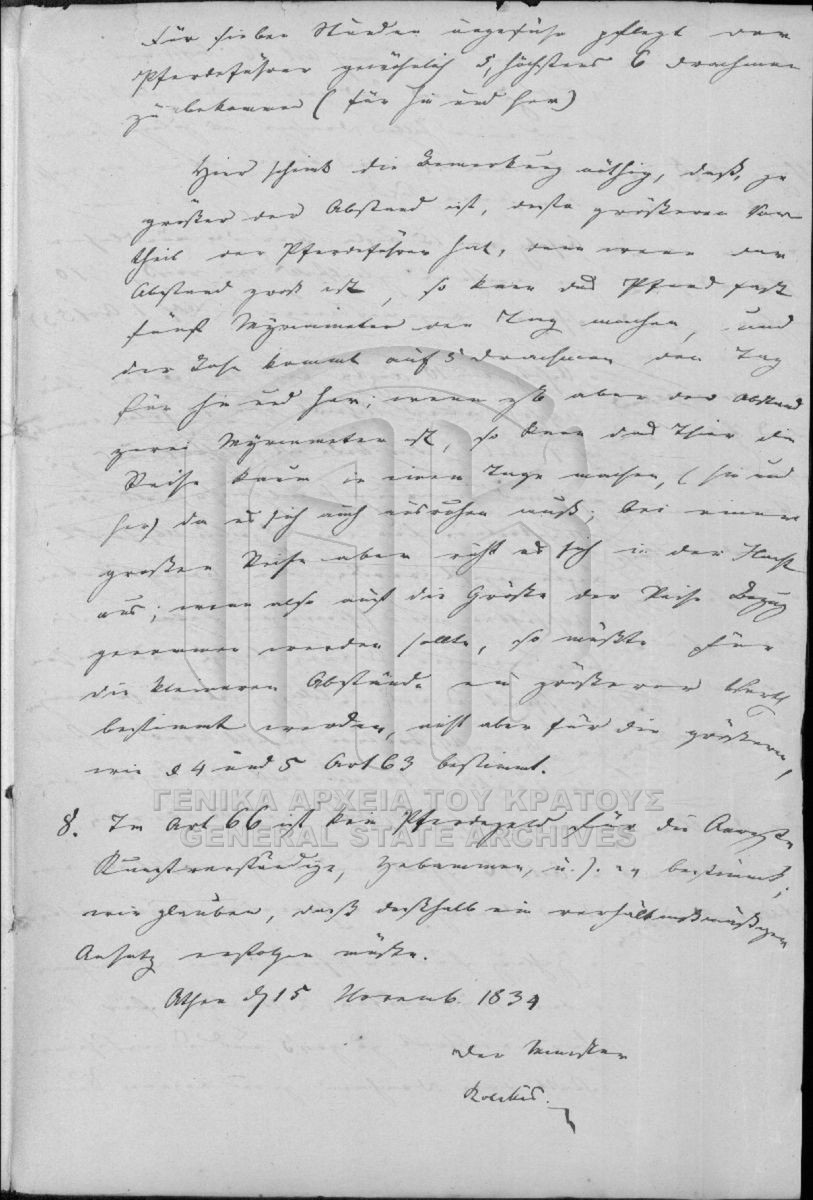 Für sieben Stunden ungefähr pflegt der
Pferdeführer gewöhnlich 5, höchstens 6 Drachmen
zu bekommen (für hin und her)
Hier scheint die Bemerkung nöthig, daß, je
größer der Abstand ist, desto größeren Vor
theil der Pferdeführer hat, denn wenn der
Abstand groß ist, so kann das Pferd fast
fünf Myriameter den Tag machen, und
der Lohn kommt auf 5 Drachmen den Tag
für hin und her; wenn aber der Abstand
zwei Myriameter ist, so kann das Thier die
Reise kaum in einem Tage machen, (hin und
her) da es sich auch ausruhen muß; bei einer
großen Reise aber ruht es sich in der Nacht
aus; wenn also auf die Größe der Reise Bezug
genommen werden sollte, so müßte für
die kleineren Abstände ein größerer
bestimmt werden, nicht aber für die größeren,
wie § 4 und 5 Art 63 bestimmt.
8. Im Art 66 ist kein Pferdegeld für die Aerzte
Kunstverständige, Hebammen, u. s. w. bestimmt;
wir glauben, daß deßhalb ein verhältnißmäßiger
Ansatz erfolgen müßte.
ΓΕΝΙΚΑ ΑΡΧΕΙΑ ΤΟΥ ΚΡΑΤΟΥΣ
GENERAL STATE ARCHIVES
Athen d 15 Novemb. 1834
Der Minister
Kolettis.